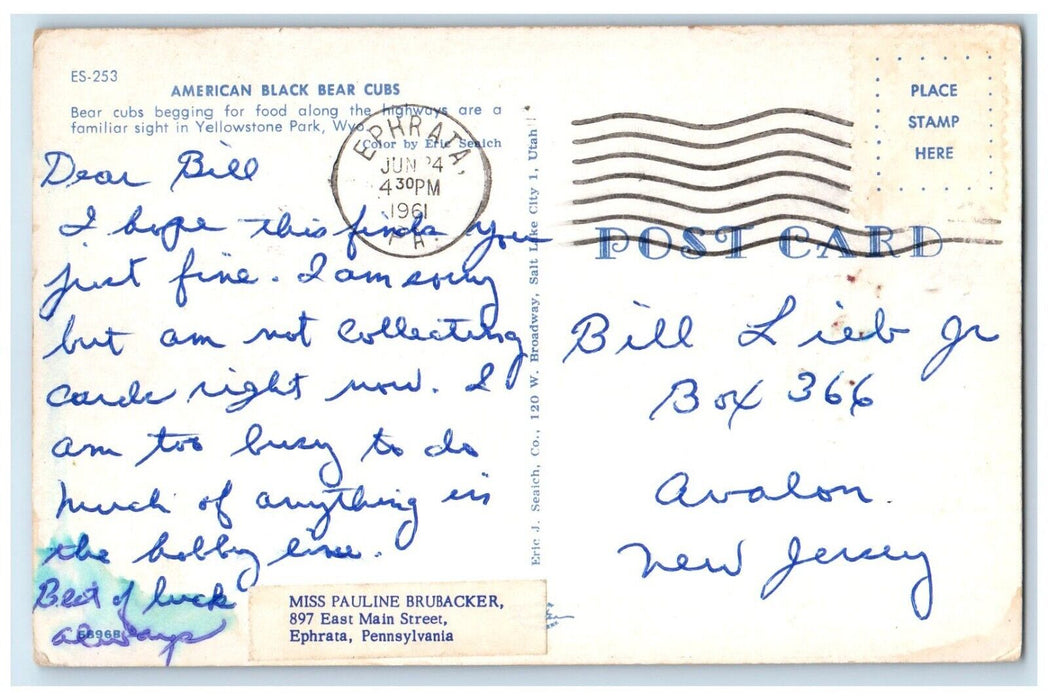 ES-253
AMERICAN BLACK BEAR CUBS
Bear cubs begging for food along the highways are a
familiar sight in Yellowstone Park, Wyo.
Color by Eric Seaich
EPHRATA,
JUN 4
4 30PM
1961
PA.
Dear Bill
I hope this finds you
just fine. I am sorry
but am not collecting
cards right now. I
am too busy to do
much of anything in
the hobby line.
Best of luck
always
68968
MISS PAULINE BRUBACKER,
897 East Main Street,
Ephrata, Pennsylvania
Eric J. Seaich, Co., 120 W. Broadway, Salt Lake City 1, Utah
PLACE
STAMP
HERE
POST CARD
Bill Lieb Jr
Box 366
Avalon.
New Jersey